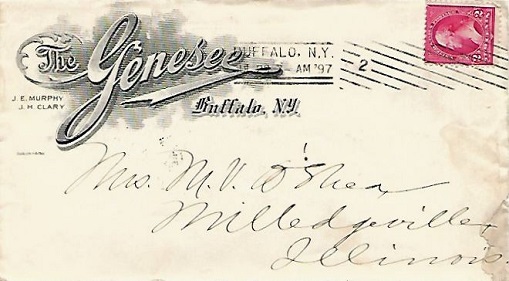 The Genesee
BUFFALO, N.Y.
AM '97
2
J. E. MURPHY
J. H. CLARY
Buffalo, N.Y.
Mrs. M. V. O'Shea,
Milledgeville,
Illinois.